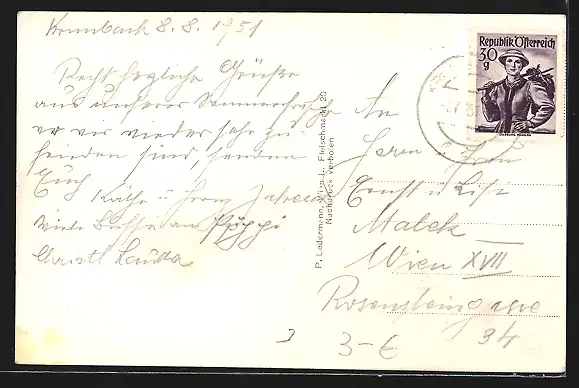 Krumbach 8.8.1951
Recht herzliche Grüße
aus unserer Sommerfrische
wo wir wieder sehr zu-
frieden sind, senden
Euch
Käthe u. Franz
viele Bussi an Puppi
Christl
P. Ledermann, Wien I., Fleischmarkt 20
Nachdruck verboten
Republik Österreich
30
g
An
Herrn u. Frau
Ernst u. Lisi
Malek
Wien XVII
Rosensteingasse
34
3-E